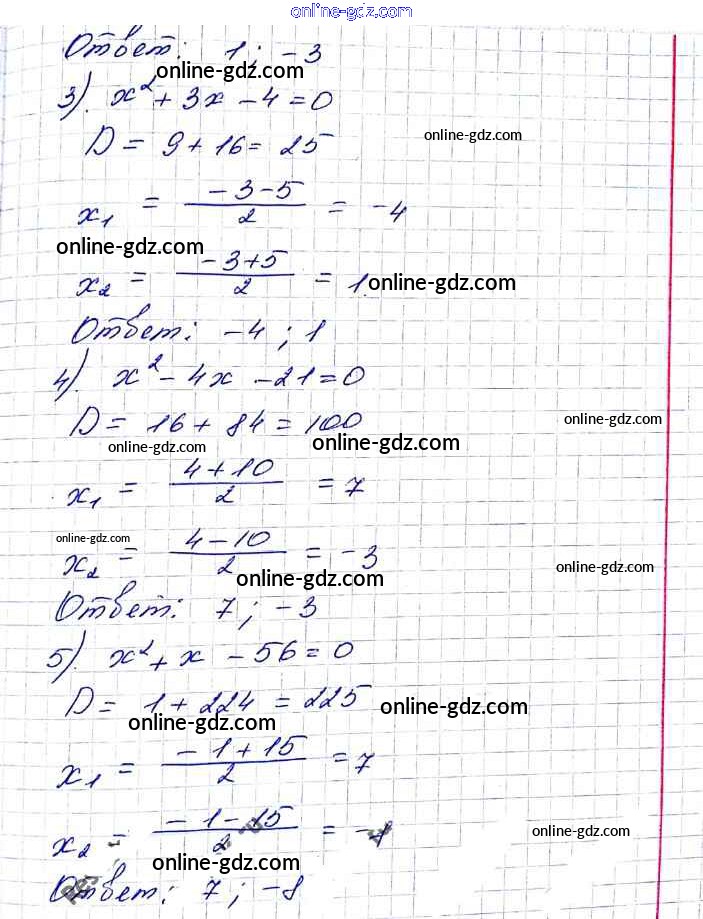 online-gdz.com
Ответ: 1; -3
online-gdz.com
3). x² + 3x - 4 = 0
D = 9 + 16 = 25
online-gdz.com
x₁ = (-3-5)/2 = -4
online-gdz.com
x₂ = (-3+5)/2 = 1.
online-gdz.com
Ответ: -4; 1
4). x² - 4x - 21 = 0
D = 16 + 84 = 100
online-gdz.com
online-gdz.com
online-gdz.com
x₁ = (4+10)/2 = 7
online-gdz.com
x₂ = (4-10)/2 = -3
online-gdz.com
online-gdz.com
Ответ: 7; -3
5). x² + x - 56 = 0
D = 1 + 224 = 225
online-gdz.com
online-gdz.com
x₁ = (-1+15)/2 = 7
x₂ = (-1-15)/2 = -
online-gdz.com
online-gdz.com
Ответ: 7; -8